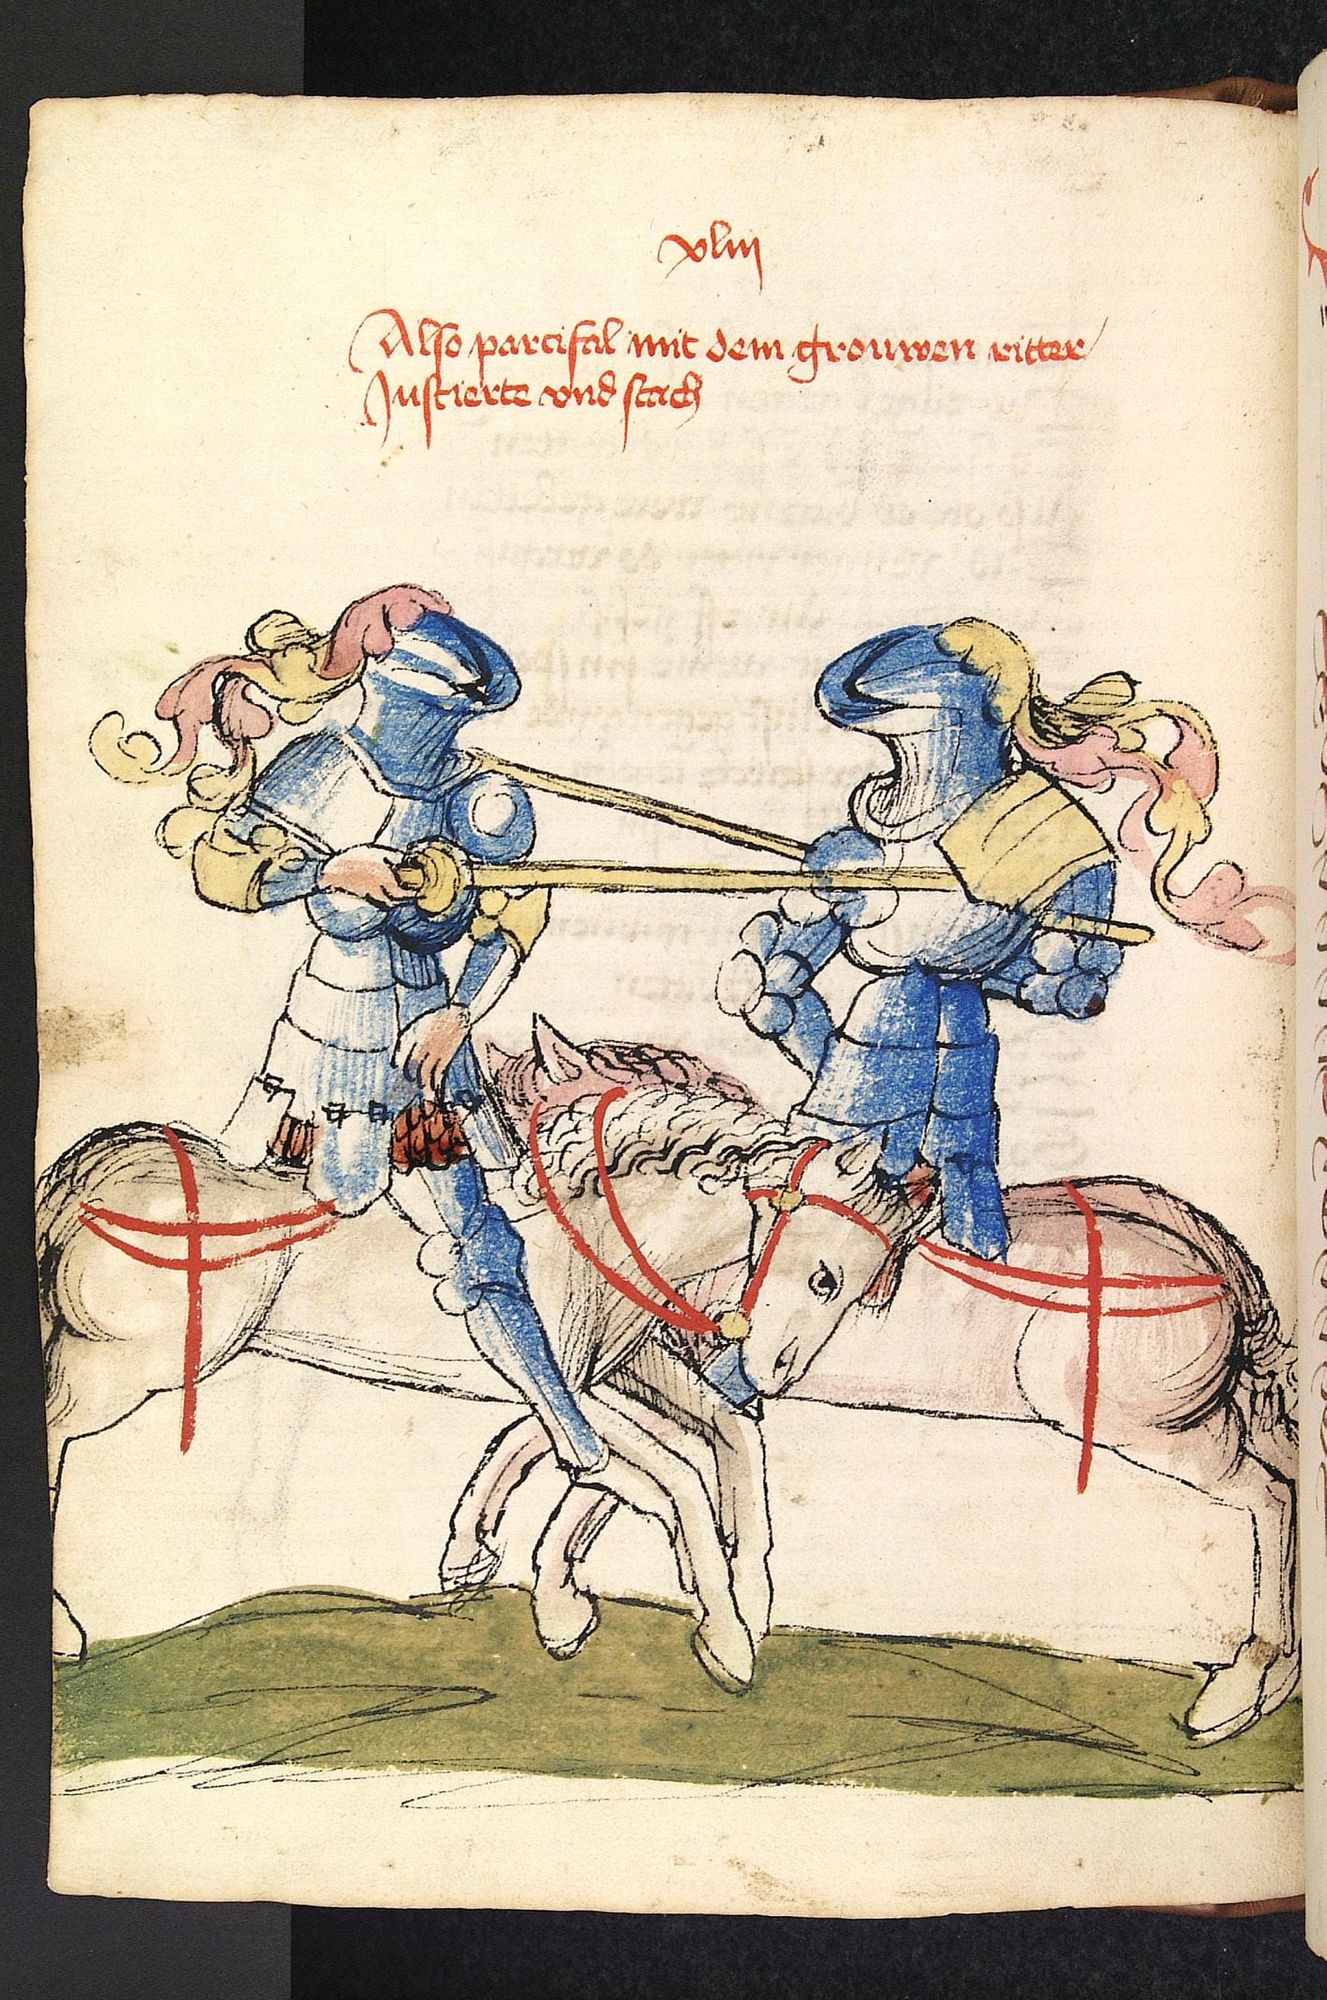 xliii
Also parcifal mit dem grouwen ritter
Justierte vnd stach